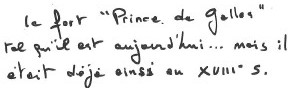 le fort "Prince de Galles"
tel qu'il est aujourd'hui... mais il
était déjà ainsi au XVIIIe s.